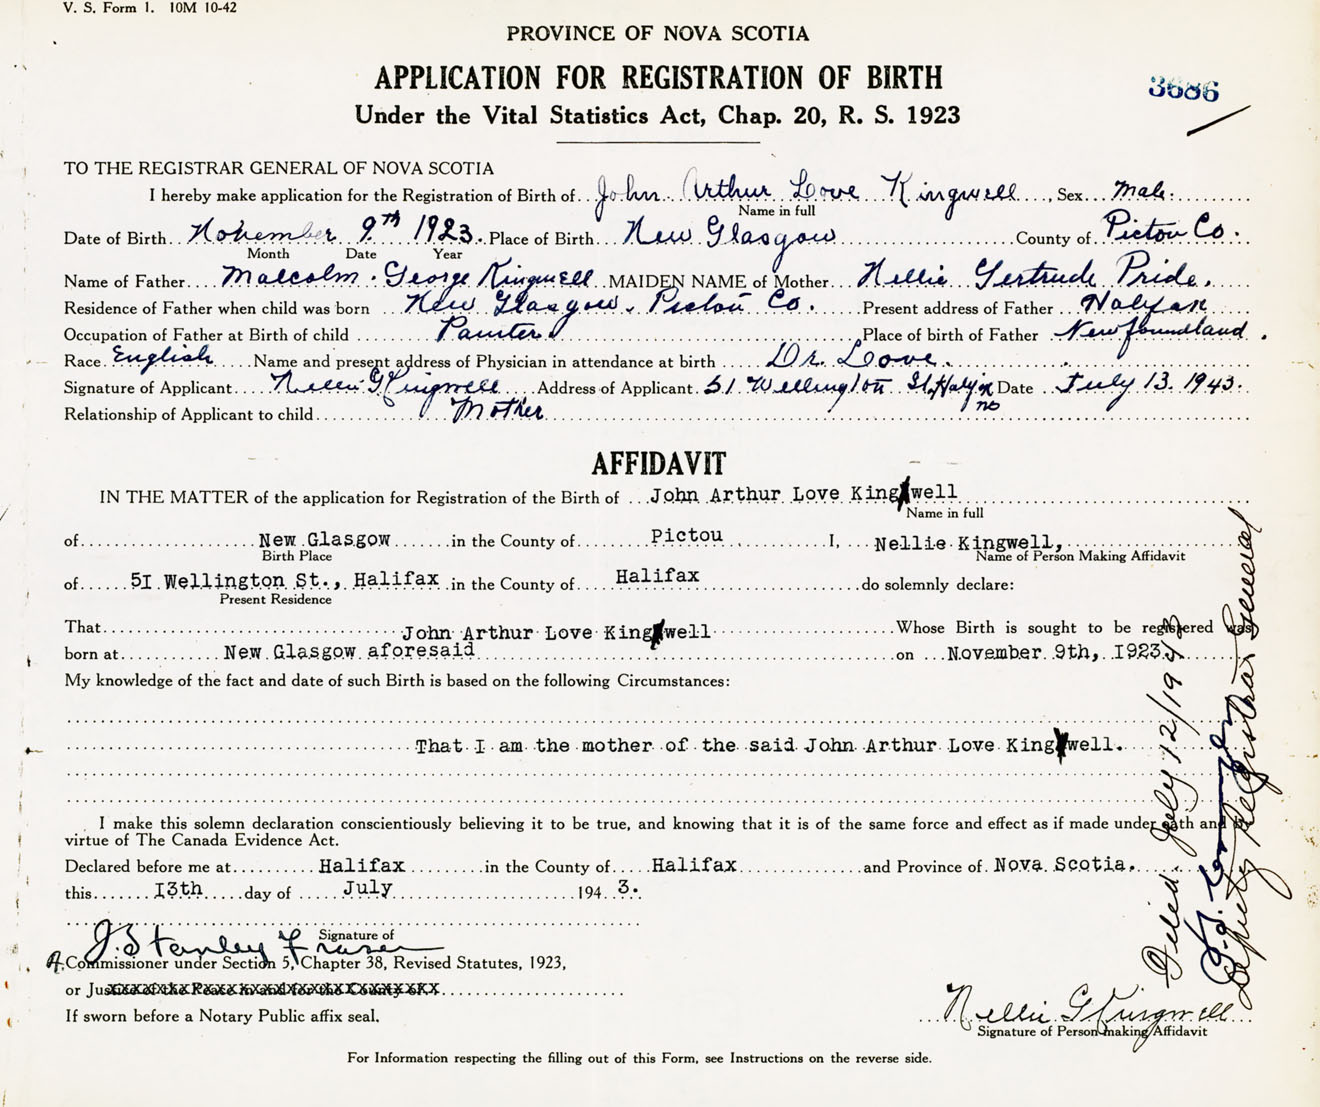 V. S. Form 1. 10M 10-42
PROVINCE OF NOVA SCOTIA
APPLICATION FOR REGISTRATION OF BIRTH
3686
Under the Vital Statistics Act, Chap. 20, R. S. 1923
TO THE REGISTRAR GENERAL OF NOVA SCOTIA
I hereby make application for the Registration of Birth of John Arthur Love Kingwell, Sex Male.
Name in full
Date of Birth November 9th 1923. Place of Birth New Glasgow County of Pictou Co.
Month Date Year
Name of Father Malcolm George Kingwell MAIDEN NAME of Mother Nellie Gertrude Pride.
Residence of Father when child was born New Glasgow, Pictou Co. Present address of Father Halifax
Occupation of Father at Birth of child Painter Place of birth of Father Newfoundland.
Race English Name and present address of Physician in attendance at birth Dr. Love.
Signature of Applicant Nellie G Kingwell Address of Applicant 51 Wellington St. Halifax NS Date July 13. 1943.
Relationship of Applicant to child Mother
AFFIDAVIT
IN THE MATTER of the application for Registration of the Birth of John Arthur Love Kingwell
Name in full
of New Glasgow in the County of Pictou I, Nellie Kingwell,
Birth Place Name of Person Making Affidavit
of 51 Wellington St., Halifax in the County of Halifax do solemnly declare:
Present Residence
That John Arthur Love Kingwell Whose Birth is sought to be registered was
born at New Glasgow aforesaid on November 9th, 1923.
My knowledge of the fact and date of such Birth is based on the following Circumstances:
That I am the mother of the said John Arthur Love Kingwell.
I make this solemn declaration conscientiously believing it to be true, and knowing that it is of the same force and effect as if made under oath and
virtue of The Canada Evidence Act.
Declared before me at Halifax in the County of Halifax and Province of Nova Scotia.
this 13th day of July 1943.
J. Stanley Fraser
Signature of
A Commissioner under Section 5, Chapter 38, Revised Statutes, 1923,
or Justice of the Peace in and for the County of
If sworn before a Notary Public affix seal.
Nellie G Kingwell
Signature of Person making Affidavit
For Information respecting the filling out of this Form, see Instructions on the reverse side.
Filed July 12/1943
Deputy Registrar General